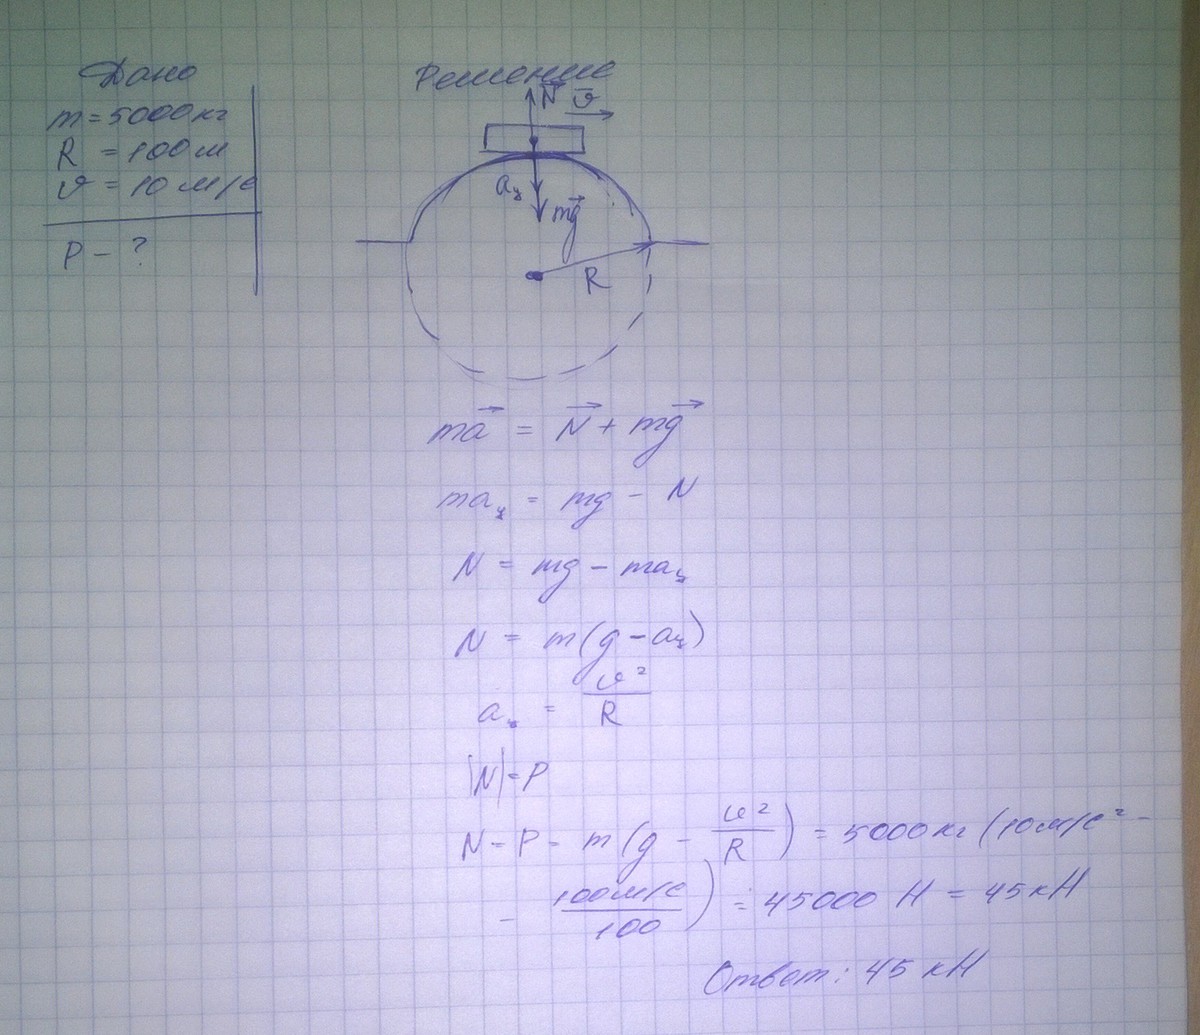 Дано
m = 5000 кг
R = 100 м
υ = 10 м/с
P - ?
Решение
N⃗ υ⃗
aц
mg⃗
R
ma⃗ = N⃗ + mg⃗
maц = mg - N
N = mg - maц
N = m(g - aц)
aц = υ²/R
|N| = P
N = P = m(g - υ²/R) = 5000 кг (10 м/с² -
- 100 м/с / 100) = 45000 Н = 45 кН
Ответ: 45 кН